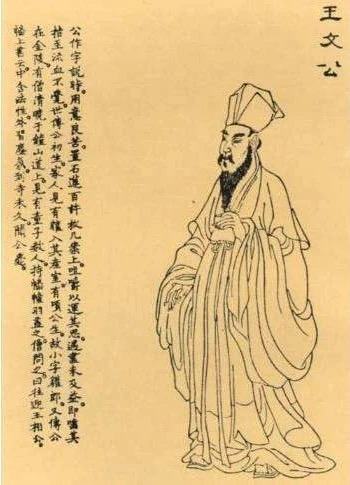 王文公
公作字說時用意良苦置石蓮百許枚几案上咀嚼以運其思遇盡未及益即嚙其
指至流血不覺世傳公初生家人見有獾入其產室有頃公生故小字獾郎又傳公
在金陵有僧清曉于鐘山道上見有童子數人持幡幢羽蓋之僧問之曰往迎王相公
幡上書云中含法性外習塵氛到寺未久聞公薨